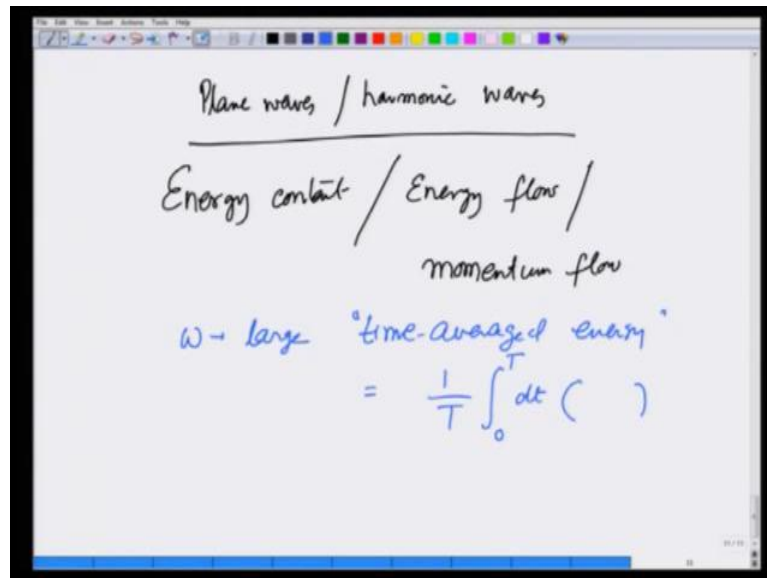 File Edit View Insert Actions Tools Help
Plane waves / harmonic waves
Energy content / Energy flow /
momentum flow
ω → large "time-averaged energy"
= 1/T ∫₀ᵀ dt ( )